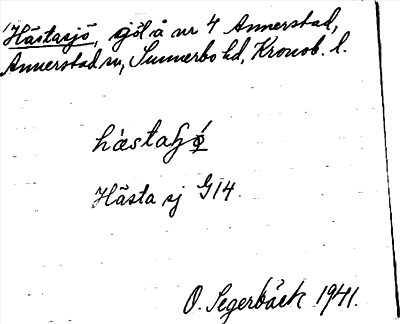 Hästasjö, göl å nr 4 Annerstad,
Annerstad sn, Sunnerbo hd, Kronob. l.
Hästa sj G14.
O. Segerbäck 1941.